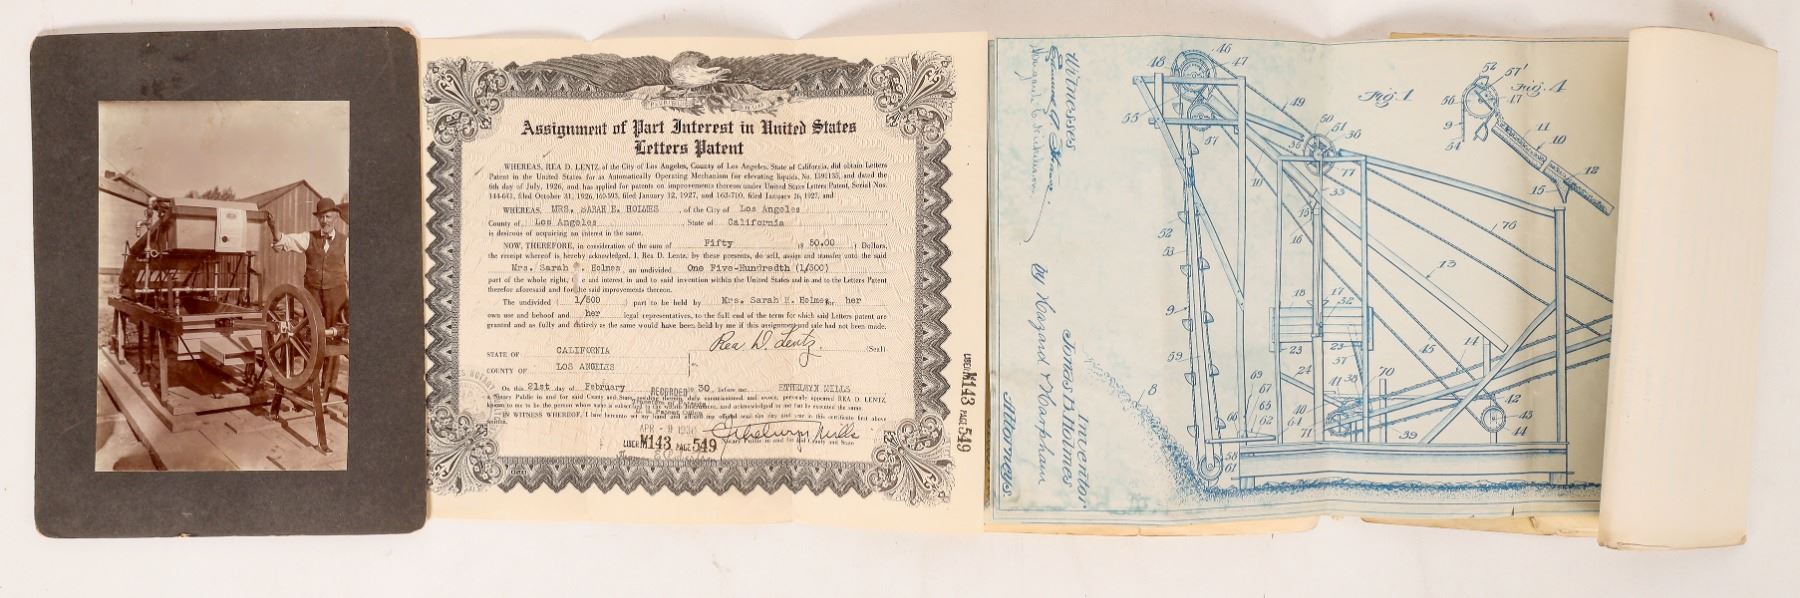 Assignment of Part Interest in United States
Letters Patent
WHEREAS, REA D. LENTZ, of the City of Los Angeles, County of Los Angeles, State of California, did obtain Letters
Patent in the United States for an Automatically Operating Mechanism for elevating liquids, No. and dated the
6th day of July, 1926, and has applied for patents on improvements thereon under United States Letters Patent, Serial Nos.
filed October 31, 1926, filed January 12, 1927, and 163-710, filed January 26, 1927, and
WHEREAS, MRS. SARAH E. HOLMES , of the City of Los Angeles
County of Los Angeles , State of California
is desirous of acquiring an interest in the same.
NOW, THEREFORE, in consideration of the sum of Fifty ($ 50.00 ) Dollars,
the receipt whereof is hereby acknowledged, I, Rea D. Lentz, by these presents, do sell, assign and transfer unto the said
Mrs. Sarah E. Holmes, an undivided One Five-Hundredth (1/500)
part of the whole right, title and interest in and to said invention within the United States and in and to the Letters Patent
therefor aforesaid and for the said improvements thereon.
The undivided ( 1/500 ) part to be held by Mrs. Sarah E. Holmes for her
own use and behoof and her legal representatives, to the full end of the term for which said Letters patent are
granted and as fully and entirely as the same would have been held by me if this assignment and sale had not been made.
Rea D. Lentz. (Seal)
STATE OF CALIFORNIA
COUNTY OF LOS ANGELES
On this 21st day of February 30 before me ETHELWYN MILLS
RECORDED
a Notary Public in and for said County and State, personally appeared REA D. LENTZ
known to me to be the person whose name is subscribed to the within instrument, and acknowledged to me that he executed the same.
IN WITNESS WHEREOF, I have hereunto set my hand and affixed my official seal the day and year in this certificate first above
written.
APR - 9 1930
Ethelwyn Mills
Notary Public in and for said County and State
LIBER M143 PAGE 549
LIBER M143 PAGE 549
Witnesses
Inventor
Jones B. Holmes
by Hazard & Harpham
Attorneys.
Fig. 1
Fig. 4
46
47
48
49
55
57
50
51
36
77
10
33
15
16
52
53
9
59
8
18
17
32
23
23
24
37
41
38
70
40
71
39
69
67
65
66
62
58
61
13
76
45
14
42
43
44
52
57'
56
47
9
54
11
10
12
15